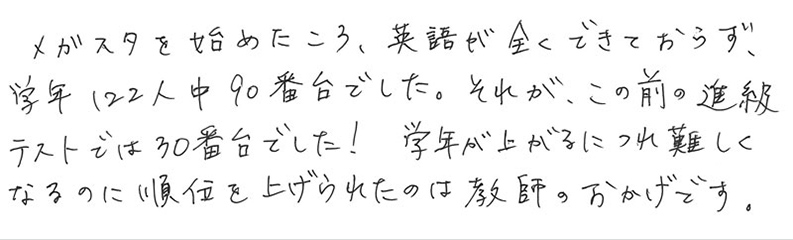 メガスタを始めたころ、英語が全くできておらず、
学年122人中90番台でした。それが、この前の進級
テストでは30番台でした！ 学年が上がるにつれ難しく
なるのに順位を上げられたのは教師のおかげです。